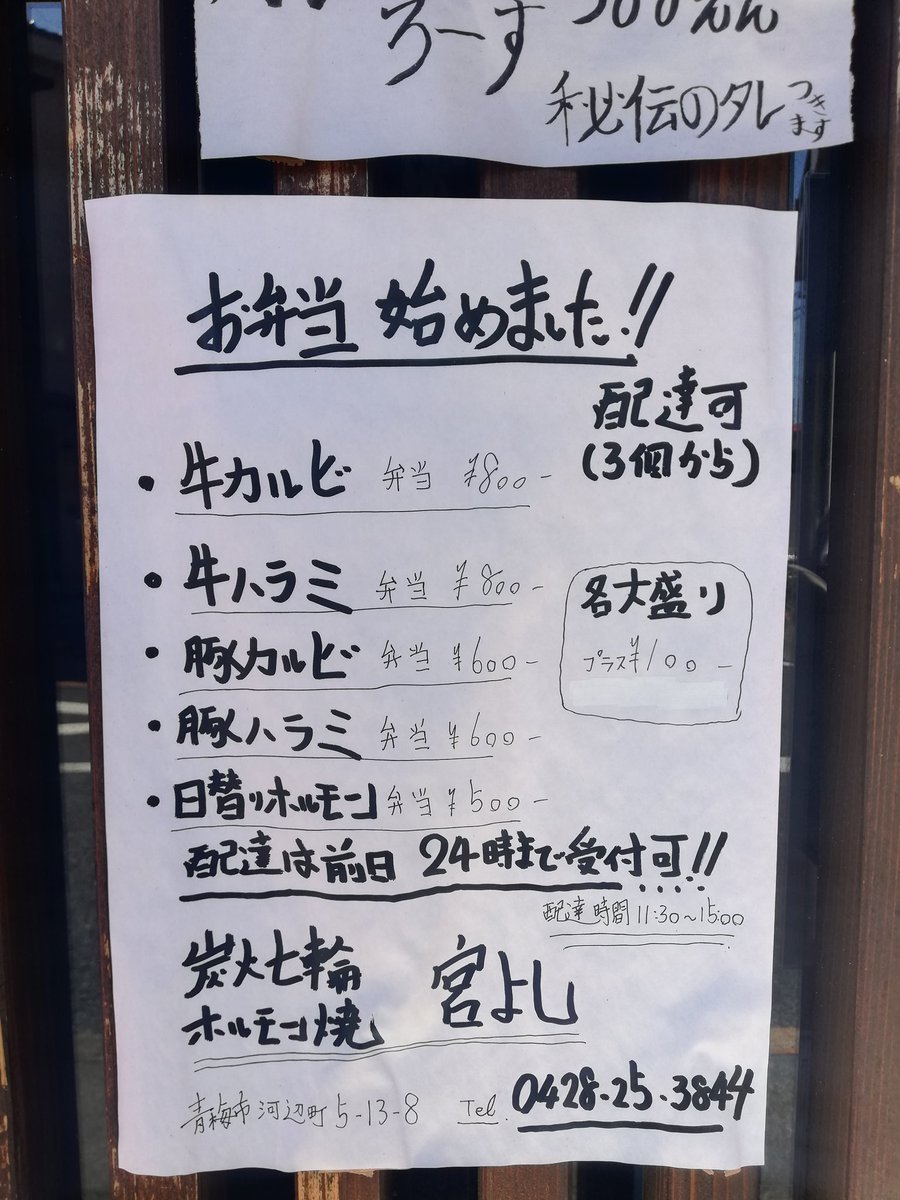 ろーす
500えん
秘伝のタレつきます
お弁当 始めました!!
配達可
(3個から)
・牛カルビ 弁当 ¥800-
・牛ハラミ 弁当 ¥800-
・豚カルビ 弁当 ¥600-
・豚ハラミ 弁当 ¥600-
・日替りホルモン弁当 ¥500-
各大盛り
プラス¥100-
配達は前日 24時まで受付可!!
配達時間 11:30~15:00
炭火七輪
ホルモン焼 宮よし
青梅市河辺町5-13-8 Tel. 0428-25-3844